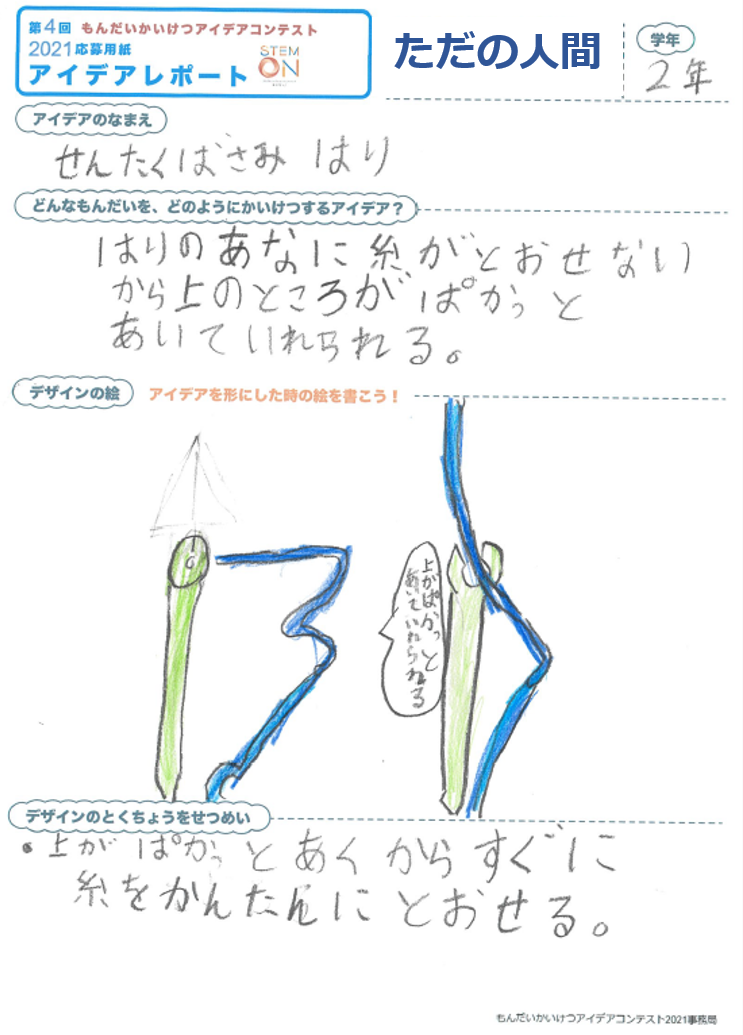 第4回 もんだいかいけつアイデアコンテスト
2021応募用紙
アイデアレポート
STEM
ON
ただの人間
学年
2年
アイデアのなまえ
せんたくばさみ はり
どんなもんだいを、どのようにかいけつするアイデア？
はりのあなに糸がとおせない
から上のところがぱかっと
あいていれられる。
デザインの絵
アイデアを形にした時の絵を書こう！
上がぱかっと
あいていれられる
デザインのとくちょうをせつめい
・上がぱかっとあくからすぐに
糸をかんたんにとおせる。
もんだいかいけつアイデアコンテスト2021事務局